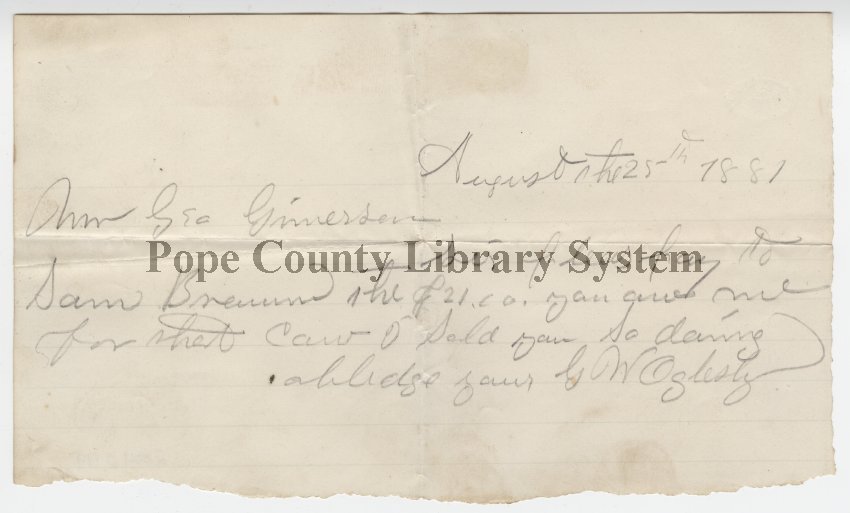 August the 25th 1881
Mr Geo Gimerson
Sir pleas pay to
Pope County Library System
Sam Braund the $21.00. you owe me
for that Caw I Sold you So daing
abledge yours G W Oglesby